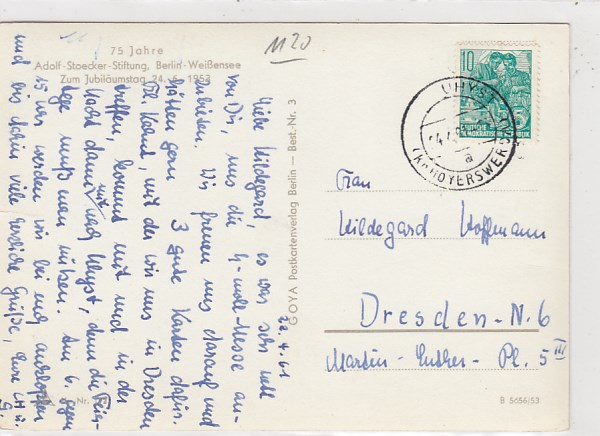 1120
75 Jahre
Adolf-Stoecker-Stiftung, Berlin-Weißensee
Zum Jubiläumstag 24. 6. 1953
22.4.61
Liebe Hildegard, es war sehr nett
von Dir, uns die H-moll-Messe an-
zubieten. Wir freuen uns darauf und
hätten gern 3 gute Karten dafür.
mit der wir uns in Dresden
treffen, kommt mit und in der
Nacht dann mit nach Uhyst, denn die Frei-
tage muß man nützen. Am 6. gegen
15 Uhr werden wir bei Euch anklopfen
und bis dahin viele herzliche Grüße, Eure LH u.
G.
GOYA Postkartenverlag Berlin — Best. Nr. 3
10
DEUTSCHE
DEMOKRATISCHE REPUBLIK
UHYST
a
(KR HOYERSWERDA)
Frau
Hildegard Hoffmann
Dresden-N. 6
Martin-Luther-Pl. 5 III
Nr.
B 5656/53